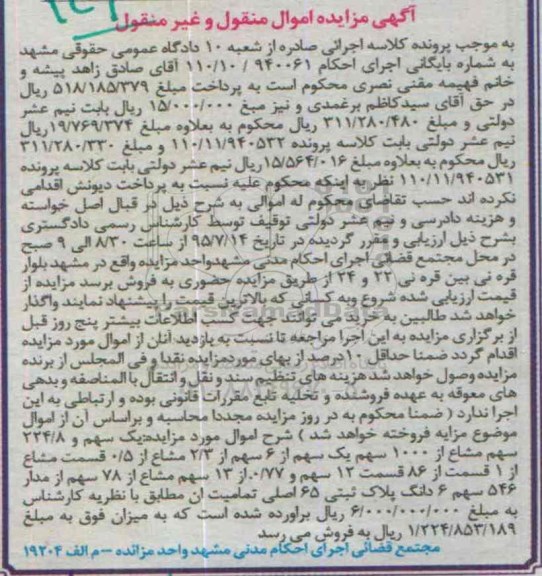 آگهی مزایده اموال منقول و غیر منقول
به موجب پرونده کلاسه اجرائی صادره از شعبه ۱۰ دادگاه عمومی حقوقی مشهد
به شماره بایگانی اجرای احکام ۹۴۰۰۶۱ / ۱۱۰/۱۰ آقای صادق زاهد پیشه و
خانم فهیمه مقنی نصری محکوم است به پرداخت مبلغ ۵۱۸/۱۸۵/۳۷۹ ریال
در حق آقای سیدکاظم برغمدی و نیز مبغ ۱۵/۰۰۰/۰۰۰ ریال بابت نیم عشر
دولتی و مبلغ ۳۱۱/۲۸۰/۴۸۰ ریال محکوم به بعلاوه مبلغ ۱۹/۷۶۹/۳۷۴ ریال
نیم عشر دولتی بابت کلاسه پرونده ۱۱۰/۱۱/۹۴۰۵۳۲ و مبلغ ۳۱۱/۲۸۰/۳۳۰
ریال محکوم به بعلاوه مبلغ ۱۵/۵۶۴/۰۱۶ ریال نیم عشر دولتی بابت کلاسه پرونده
۱۱۰/۱۱/۹۴۰۵۳۱ نظر به اینکه محکوم علیه نسبت به پرداخت دیونش اقدامی
نکرده اند حسب تقاضای محکوم له اموالی به شرح ذیل در قبال اصل خواسته
و هزینه دادرسی و نیم عشر دولتی توقیف توسط کارشناس رسمی دادگستری
بشرح ذیل ارزیابی و مقرر گردیده در تاریخ ۹۵/۷/۱۴ از ساعت ۸/۳۰ الی ۹ صبح
در محل مجتمع قضائی اجرای احکام مدنی مشهدواحد مزایده واقع در مشهد بلوار
قره نی بین قره نی ۲۲ و ۲۴ از طریق مزایده حضوری به فروش برسد مزایده از
قیمت ارزیابی شده شروع وبه کسانی که بالاترین قیمت را پیشنهاد نمایند واگذار
خواهد شد طالبین به خرید می توانند جهت کسب اطلاعات بیشتر پنج روز قبل
از برگزاری مزایده به این اجرا مراجعه تا نسبت به بازدید آنان از اموال مورد مزایده
اقدام گردد ضمنا حداقل ۱۰درصد از بهای موردمزایده نقدا و فی المجلس از برنده
مزایده وصول خواهد شد هزینه های تنظیم سند و نقل و انتقال با المناصفه و بدهی
های معوقه به عهده فروشنده و تخلیه تابع مقررات قانونی بوده و ارتباطی به این
اجرا ندارد ( ضمنا محکوم به در روز مزایده مجددا محاسبه و براساس آن از اموال
موضوع مزایه فروخته خواهد شد ) شرح اموال مورد مزایده:یک سهم و ۲۲۴/۸
سهم مشاع از ۱۰۰۰ سهم یک سهم از ۶ سهم از ۲/۳ مشاع از ۰/۵ قسمت مشاع
از ۱ قسمت از ۸۶ قسمت ۱۲ سهم و ۰/۷۷ از ۱۳ سهم مشاع از ۷۸ سهم از مدار
۵۴۶ سهم ۶ دانگ پلاک ثبتی ۶۵ اصلی تمامیت ان مطابق با نظریه کارشناس
به مبلغ ۶/۰۰۰/۰۰۰/۰۰۰ ریال براورده شده است که به میزان فوق به مبلغ
۱/۲۲۴/۸۵۳/۱۸۹ ریال به فروش می رسد
مجتمع قضائی اجرای احکام مدنی مشهد واحد مزائده –م الف ۱۹۳۰۴